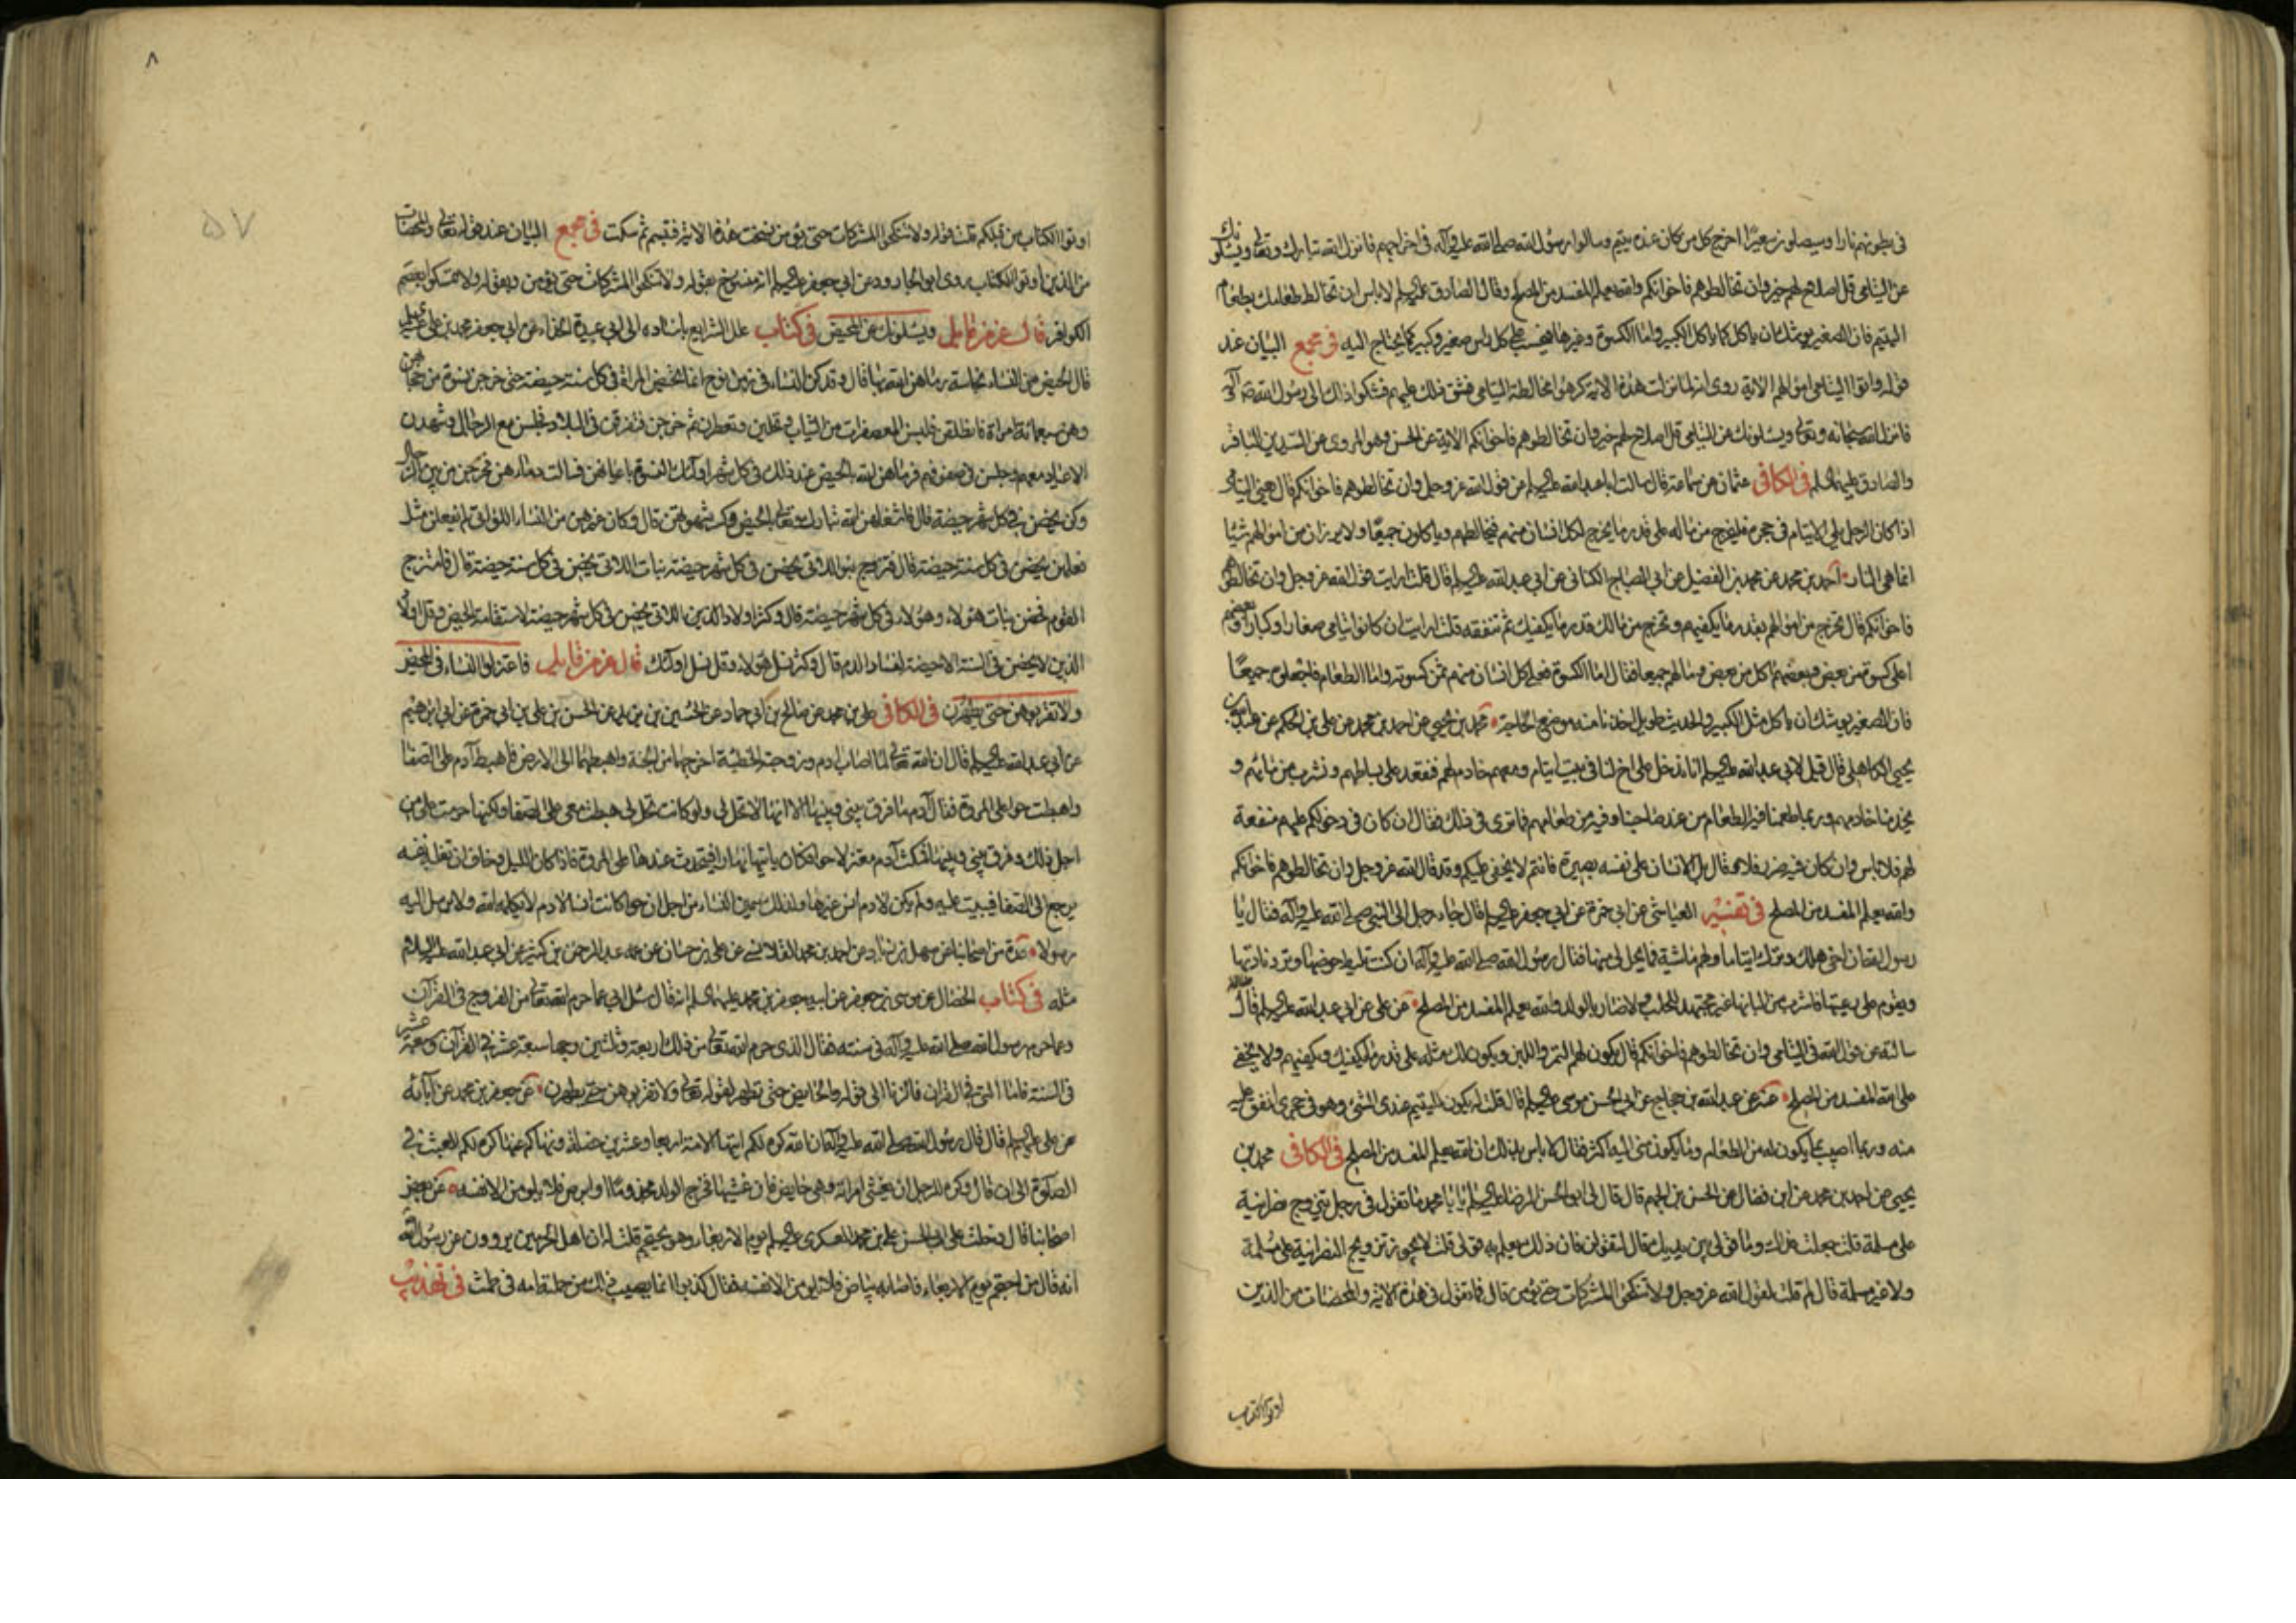 في بطونهم نارا وسيصلون سعيرا اخرج كل من كان عنده يتيم وسالوا رسول الله صلى الله عليه وآله في اخراجهم فانزل الله تبارك وتعالى ويسئلونك
عن اليتامى قل اصلاح لهم خير وان تخالطوهم فاخوانكم والله يعلم المفسد من المصلح وقال الصادق عليه السلم لا باس ان تخالط طعامك بطعام
اليتيم فان الصغير يوشك ان ياكل كما ياكل الكبير واما الكسوة وغيرها فيحسب على كل راس صغير وكبير كما يحتاج اليه في مجمع البيان عند
قوله واتوا اليتامى اموالهم الاية روى انه لما نزلت هذه الاية كرهوا مخالطة اليتامى فشق ذلك عليهم فشكوا ذلك الى رسول الله ص وآله
فانزل الله سبحانه وتعالى ويسئلونك عن اليتامى قل اصلاح لهم خير وان تخالطوهم فاخوانكم الاية عن الحسن وهو المروى عن السيدين الباقر
والصادق عليهما السلم في الكافي عثمان عن سماعة قال سالت ابا عبد الله عليه السلم عن قول الله عز وجل وان تخالطوهم فاخوانكم قال يعني اليتامى
اذا كان الرجل يلي الايتام في حجره فليخرج من ماله على قدر ما يخرج لكل انسان منهم فيخالطهم وياكلون جميعا ولا يرزان من اموالهم شيئا
انما هي النار احمد بن محمد عن محمد بن الفضيل عن ابي الصباح الكناني عن ابي عبد الله عليه السلم قال قلت ارايت قول الله عز وجل وان تخالطوهم
فاخوانكم قال تخرج من اموالهم بقدر ما يكفيهم وتخرج من مالك قدر ما يكفيك ثم تنفقه قلت ارايت ان كانوا يتامى صغارا وكبارا وبعضهم
اعلى كسوة من بعض وبعضهم اكل من بعض ومالهم جميعا فقال اما الكسوة فعلى كل انسان منهم ثمن كسوته واما الطعام فاجعلوه جميعا
فان الصغير يوشك ان ياكل مثل الكبير والحديث طويل اخذنا منه موضع الحاجة محمد بن يحيى عن احمد بن محمد عن علي بن الحكم عن عبد الله بن
يحيى الكاهلي قال قيل لابي عبد الله عليه السلم انا ندخل على اخ لنا في بيت ايتام ومعهم خادم لهم فنقعد على بساطهم ونشرب من مائهم و
يخدمنا خادمهم وربما طعمنا فيه الطعام من عند صاحبنا وفيه من طعامهم فما ترى في ذلك فقال ان كان في دخولكم عليهم منفعة
لهم فلا باس وان كان فيه ضرر فلا وقال بل الانسان على نفسه بصيرة فانتم لا يخفى عليكم وقد قال الله عز وجل وان تخالطوهم فاخوانكم
والله يعلم المفسد من المصلح في تفسير العياشي عن ابي حمزة عن ابي جعفر عليه السلم قال جاء رجل الى النبي صلى الله عليه وآله فقال يا
رسول الله ان اخي هلك وترك ايتاما ولهم ماشية فما يحل لي منها فقال رسول الله صلى الله عليه وآله ان كنت تليط حوضها وترد نادتها
وتقوم على رعيتها فاشرب من البانها غير مجتهد للحلب ولا ضار بالولد والله يعلم المفسد من المصلح عن علي عن ابي عبد الله عليه السلم قال
سالته عن قول الله في اليتامى وان تخالطوهم فاخوانكم قال يكون لهم التمر واللبن ويكون لك مثله على قدر ما يكفيك ويكفيهم ولا يخفى
على الله المفسد من المصلح عن عبد الله بن حجاج عن ابي الحسن موسى عليه السلم قال قلت له يكون لليتيم عندى الشئ وهو في حجرى انفق عليه
منه وربما اصيب مما يكون له من الطعام وما يكون مني اليه اكثر فقال لا باس بذلك ان الله يعلم المفسد من المصلح في الكافي محمد بن
يحيى عن احمد بن محمد عن ابن فضال عن الحسن بن الجهم قال قال لي ابو الحسن الرضا عليه السلم يا با محمد ما تقول في رجل يتزوج نصرانية
على مسلمة قلت جعلت فداك وما قولي بين يديك قال لتقولن فان ذلك يعلم به قولي قلت لا يجوز تزويج النصرانية على مسلمة
ولا غير مسلمة قال لم قلت لقول الله عز وجل ولا تنكحوا المشركات حتى يؤمن قال فما تقول في هذه الاية والمحصنات من الذين
اوتوا الكتاب
٨
٥٧
اوتوا الكتاب من قبلكم قلت قوله ولا تنكحوا المشركات حتى يؤمن نسخت هذه الاية فتبسم ثم سكت في مجمع البيان عند قوله تعالى والمحصنات
من الذين اوتوا الكتاب روى ابو الجارود عن ابي جعفر عليه السلم انه منسوخ بقوله ولا تنكحوا المشركات حتى يؤمن وبقوله ولا تمسكوا بعصم
الكوافر قال عز من قايل ويسئلونك عن المحيض في كتاب علل الشرايع باسناده الى ابي عبيدة الحذاء عن ابي جعفر محمد بن علي عليه السلم
قال الحيض من النساء نجاسة رماهن الله بها قال وقد كن النساء في زمن نوح انما تحيض المراة في كل سنة حيضة حتى خرجن نسوة من حجابهن
وهن سبعمائة امراة فانطلقن فلبسن المعصفرات من الثياب وتحلين وتعطرن ثم خرجن فتفرقن في البلاد فجلسن مع الرجال وشهدن
الاعياد معهم وجلسن في صفوفهم فرماهن الله بالحيض عند ذلك في كل شهر اولئك النسوة باعيانهن فسالت دماؤهن فخرجن من بين الرجال
وكن يحضن في كل شهر حيضة قال فاشغلهن الله تبارك وتعالى بالحيض وكسر شهوتهن قال وكان غيرهن من النساء اللواتي لم يفعلن مثل
فعلهن يحضن في كل سنة حيضة قال فتزوج بنو اللاتي يحضن في كل شهر حيضة بنات اللاتي يحضن في كل سنة حيضة قال فامتزج
القوم فحضن بنات هؤلاء وهؤلاء في كل شهر حيضة قال وكثر اولاد الذين اللاتي يحضن في كل شهر حيضة لاستقامة الحيض وقل اولاد
الذين لا يحضن في السنة الا حيضة لفساد الدم قال وكثر نسل هؤلاء وقل نسل اولئك قال عز من قايل فاعتزلوا النساء في المحيض
ولا تقربوهن حتى يطهرن في الكافي علي بن محمد عن صالح بن ابي حماد عن الحسين بن يزيد عن الحسن بن علي بن ابي حمزة عن ابي ابراهيم
عن ابي عبد الله عليه السلم قال ان الله تعالى لما اصاب ادم وزوجته الخطيئة اخرجهما من الجنة واهبطهما الى الارض فاهبط آدم على الصفا
واهبطت حوا على المروة فقال آدم ما فرق بيني وبينها الا انها لا تحل لي ولو كانت تحل لي هبطت معي على الصفا ولكنها حرمت علي من
اجل ذلك وفرق بيني وبينها فمكث آدم معتزلا حوا فكان ياتيها نهارا فيتحدث عندها على المروة فاذا كان الليل وخاف ان تغلبه نفسه
يرجع الى الصفا فيبيت عليه ولم يكن لادم انس غيرها ولذلك سمين النساء من اجل ان حوا كانت انسا لادم لا يكلمه الله ولا يرسل اليه
رسولا عدة من اصحابنا عن سهل بن زياد عن احمد بن محمد القلانسي عن علي بن حسان عن عمه عبد الرحمن بن كثير عن ابي عبد الله عليه السلام
مثله في كتاب الخصال عن موسى بن جعفر عن ابيه جعفر بن محمد عليهما السلم انه قال سئل ابي عما حرم الله تعالى من الفروج في القرآن
وعما حرم رسول الله صلى الله عليه وآله في سنته فقال الذى حرم الله تعالى من ذلك اربعة وثلثين وجها سبعة عشر في القرآن وسبعة عشر
في السنة فاما التي في القران فالزنا الى قوله والحايض حتى تطهر لقوله تعالى ولا تقربوهن حتى يطهرن عن جعفر بن محمد عن آبائه
عن علي عليه السلم قال قال رسول الله صلى الله عليه وآله ان الله كره لكم ايتها الامة اربعا وعشرين خصلة ونهاكم عنها كره لكم العبث في
الصلوة الى ان قال وكره للرجل ان يغشى امراته وهي حايض فان غشيها فخرج الولد مجذوما او ابرص فلا يلومن الا نفسه عن بعض
اصحابنا قال دخلت على ابي الحسن علي بن محمد العسكرى عليه السلم يوم الاربعاء وهو يحتجم قلت له ان اهل الحرمين يروون عن رسول الله
انه قال من احتجم يوم الاربعاء فاصابه بياض فلا يلومن الا نفسه فقال كذبوا انما يصيب ذلك من حملته امه في طمث في تهذيب